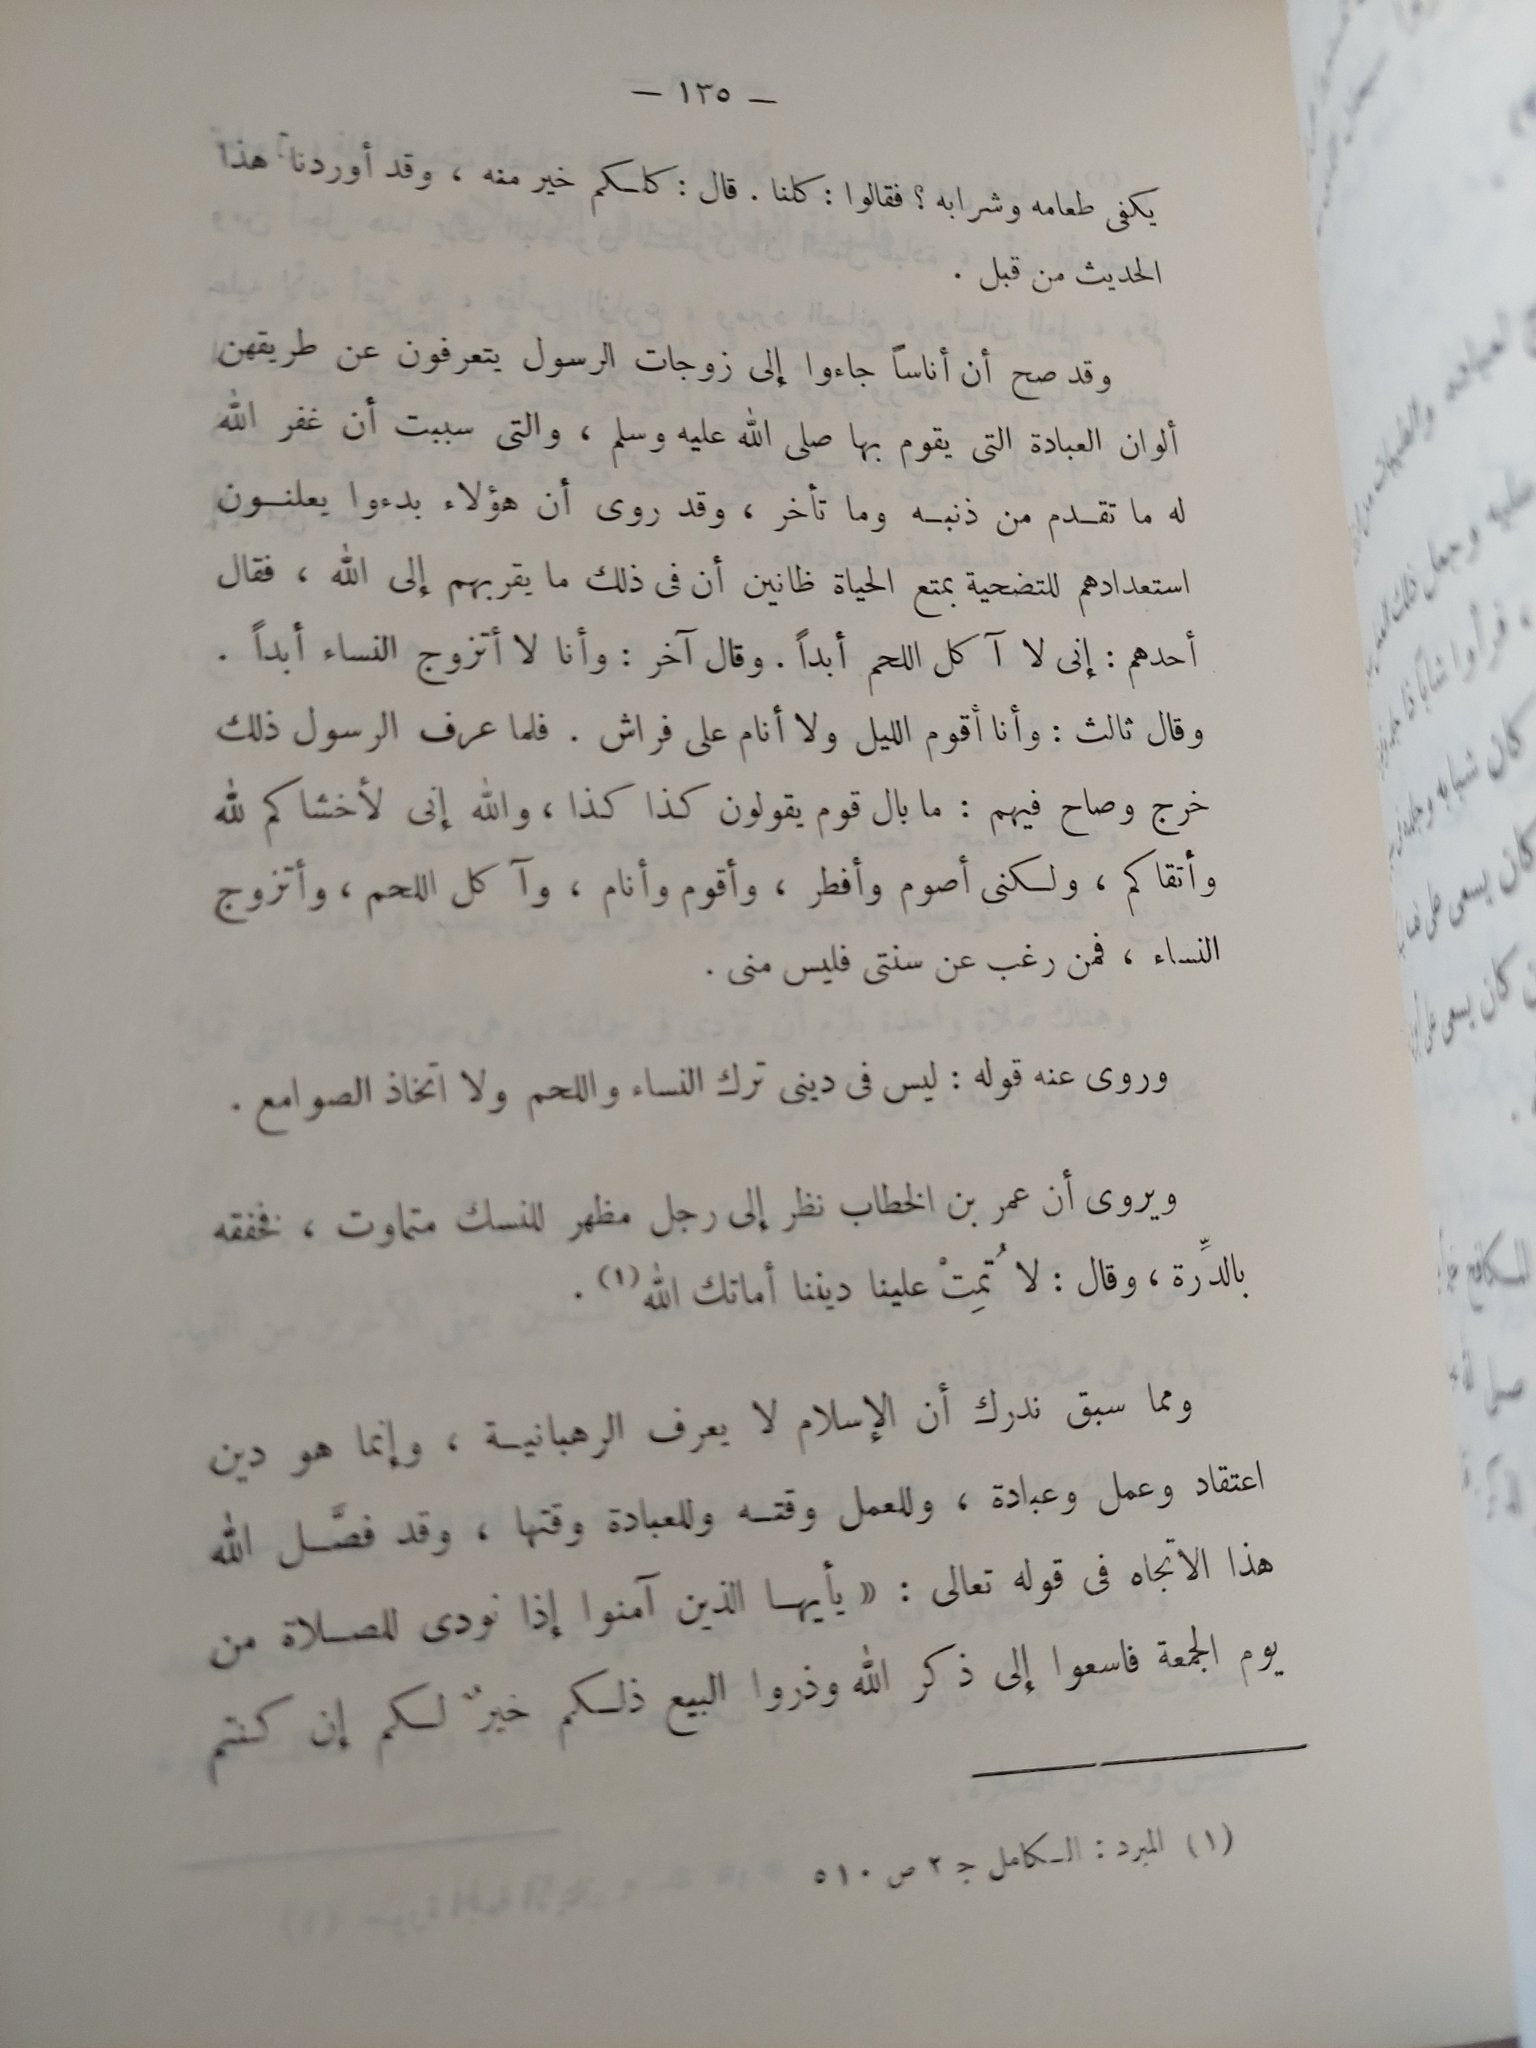 — ١٣٥ —
يكفى طعامه وشرابه ؟ فقالوا : كلنا . قال : كلكم خير منه ، وقد أوردنا هذا
الحديث من قبل .
وقد صح أن أناساً جاءوا إلى زوجات الرسول يتعرفون عن طريقهن
ألوان العبادة التى يقوم بها صلى الله عليه وسلم ، والتى سببت أن غفر الله
له ما تقدم من ذنبه وما تأخر ، وقد روى أن هؤلاء بدءوا يعلنون
استعدادهم للتضحية بمتع الحياة ظانين أن فى ذلك ما يقربهم إلى الله ، فقال
أحدهم : إنى لا آكل اللحم أبداً . وقال آخر : وأنا لا أتزوج النساء أبداً .
وقال ثالث : وأنا أقوم الليل ولا أنام على فراش . فلما عرف الرسول ذلك
خرج وصاح فيهم : ما بال قوم يقولون كذا كذا ، والله إنى لأخشاكم لله
وأتقاكم ، ولكنى أصوم وأفطر ، وأقوم وأنام ، وآكل اللحم ، وأتزوج
النساء ، فمن رغب عن سنتى فليس منى .
وروى عنه قوله : ليس فى دينى ترك النساء واللحم ولا اتخاذ الصوامع .
ويروى أن عمر بن الخطاب نظر إلى رجل مظهر للنسك متماوت ، فخفقه
بالدِّرة ، وقال : لا تُمِتْ علينا ديننا أماتك الله (١) .
ومما سبق ندرك أن الإسلام لا يعرف الرهبانية ، وإنما هو دين
اعتقاد وعمل وعبادة ، وللعمل وقته وللعبادة وقتها ، وقد فصَّل الله
هذا الاتجاه فى قوله تعالى : « يأيها الذين آمنوا إذا نودى للصلاة من
يوم الجمعة فاسعوا إلى ذكر الله وذروا البيع ذلكم خيرٌ لكم إن كنتم
(١) المبرد : الكامل ج ٢ ص ٥١٠